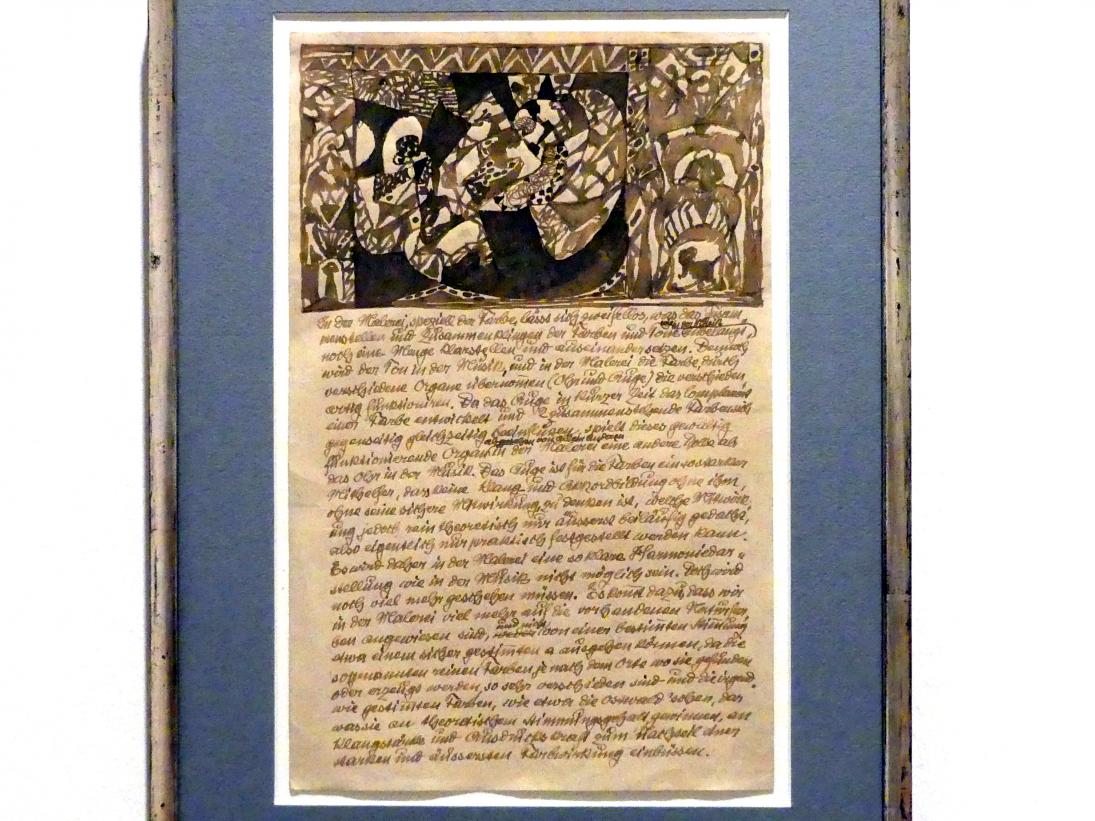 In der Malerei, speziell der Farbe, lässt sich zweifellos, was das Zusam
menstellen und Zusammenklingen der Farben und Töne anbelangt,
noch eine Menge klarstellen und auseinandersetzen. Dennoch
wird der Ton in der Musik, und in der Malerei die Farbe, durch
verschiedene Organe übernomen (Ohr und Auge) die verschieden
artig funktioniren. Da das Auge in kurzer Zeit das Complement
einer Farbe entwickelt und 2 zusammenstehende Farben sich
gegenseitig gleichzeitig beeinflussen, spielt dieses gewaltig
abgesehen von allem anderen
funktionierende Organ in der Malerei eine andere Rolle als
das Ohr in der Musik. Das Auge ist für die Farben ein so starker
Mithelfer, dass keine Klang- und Akkordbildung ohne ihm,
ohne seine sichere Mitwirkung zu denken ist, welche Mitwirk
ung jedoch rein theoretisch nur äusserst beiläufig gedacht,
also eigentlich nur praktisch festgestellt werden kann.
Es wird daher in der Malerei eine so klare Harmoniedar=
stellung wie in der Musik nicht möglich sein. Doch wird
noch viel mehr geschehen müssen. Es komt dazu, dass wir
in der Malerei viel mehr auf die vorhandenen Naturfar
ben angewiesen sind, und nicht von einer bestimten Stimmung
etwa einem sicher gestimten a ausgehen können, da die
sogenannten reinen Farben je nach dem Orte wo sie gefunden
oder erzeugt werden, so sehr verschieden sind und die irgend
wie gestimten Farben, wie etwa die Ostwald'schen, das
was sie an theoretischem Stimmungsgehalt gewinnen, an
Klangstärke und Ausdruckskraft zum Nachteil einer
starken und äussersten Farbwirkung einbüssen.